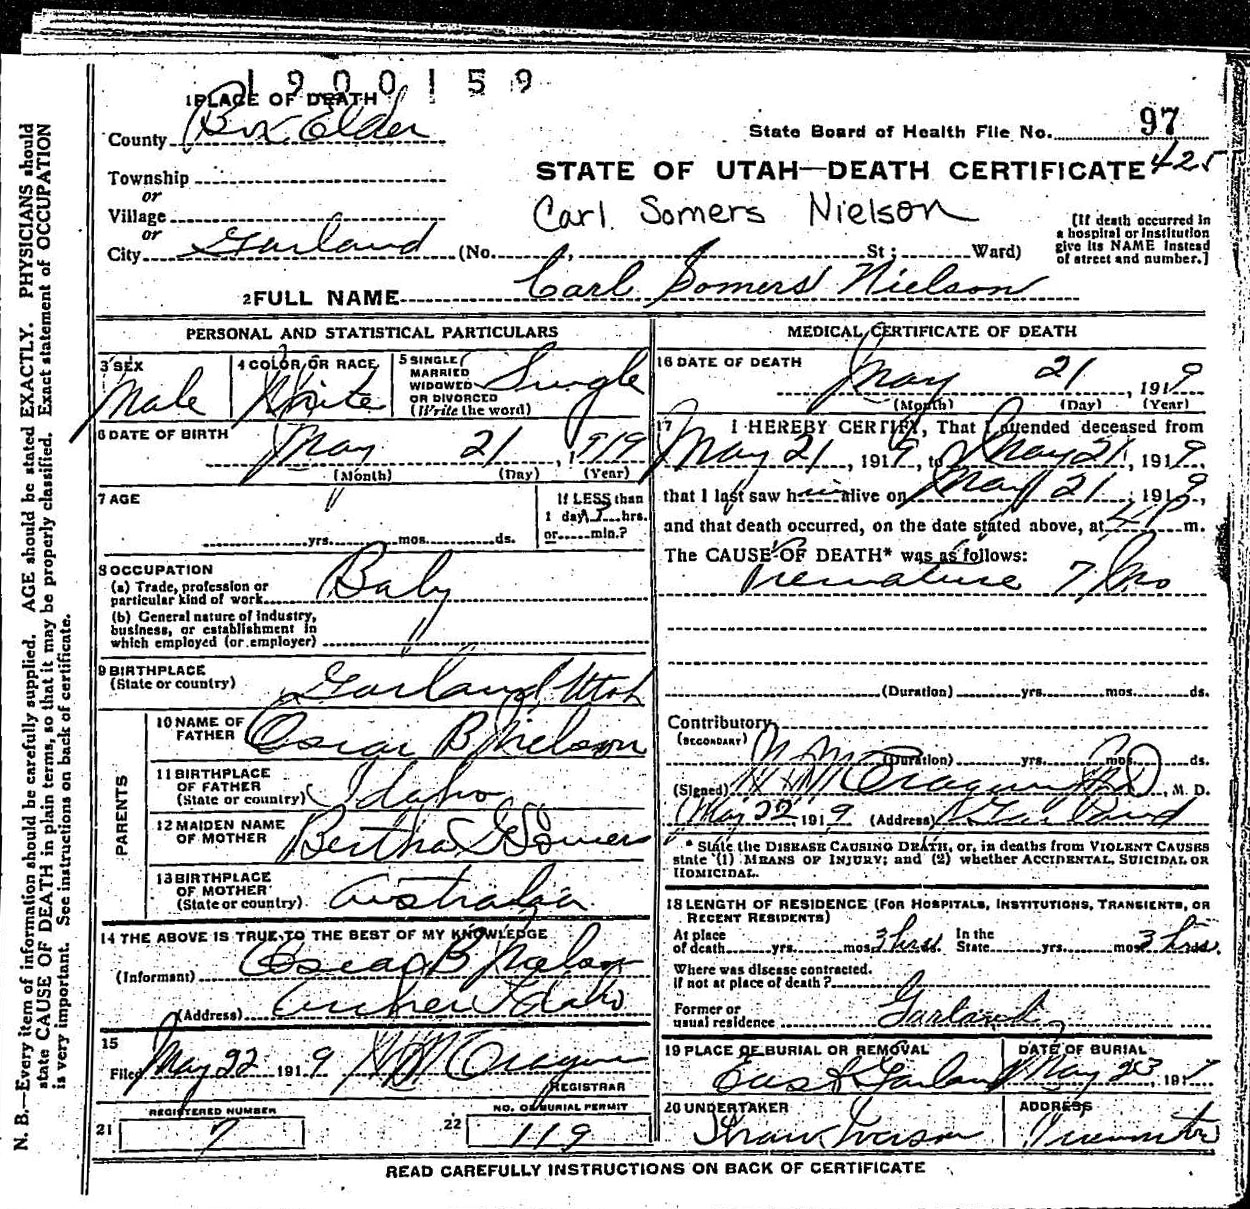 1900159
1 PLACE OF DEATH
County Box Elder
State Board of Health File No. 97
425
Township
or
Village
or
City Garland (No. , St; Ward)
STATE OF UTAH—DEATH CERTIFICATE
Carl Somers Nielson
[If death occurred in
a hospital or institution
give its NAME instead
of street and number.]
2 FULL NAME Carl Somers Nielson
PERSONAL AND STATISTICAL PARTICULARS
3 SEX Male
4 COLOR OR RACE White
5 SINGLE
MARRIED
WIDOWED
OR DIVORCED
(Write the word) Single
6 DATE OF BIRTH May 21, 1919
(Month) (Day) (Year)
7 AGE
yrs. mos. ds.
If LESS than
1 day, hrs.
or min.?
8 OCCUPATION
(a) Trade, profession or
particular kind of work Baby
(b) General nature of industry,
business, or establishment in
which employed (or employer) "
9 BIRTHPLACE
(State or country) Garland Utah
PARENTS
10 NAME OF
FATHER Oscar B Nielson
11 BIRTHPLACE
OF FATHER
(State or country) Idaho
12 MAIDEN NAME
OF MOTHER Bertha G Somers
13 BIRTHPLACE
OF MOTHER
(State or country) Australia
14 THE ABOVE IS TRUE TO THE BEST OF MY KNOWLEDGE
(Informant) Oscar B Nielson
(Address) Archer Idaho
15
Filed May 22 1919
REGISTRAR
REGISTERED NUMBER
21 7
NO. OF BURIAL PERMIT
22 119
MEDICAL CERTIFICATE OF DEATH
16 DATE OF DEATH
May 21, 1919
(Month) (Day) (Year)
17 I HEREBY CERTIFY, That I attended deceased from
May 21, 1919, to May 21, 1919,
that I last saw him alive on May 21, 1919,
and that death occurred, on the date stated above, at 4 P m.
The CAUSE OF DEATH* was as follows:
Premature 7 Mo
(Duration) yrs. mos. ds.
Contributory
(SECONDARY)
(Duration) yrs. mos. ds.
(Signed) M. D.
May 22, 1919 (Address) Garland
* State the DISEASE CAUSING DEATH, or, in deaths from VIOLENT CAUSES
state (1) MEANS OF INJURY; and (2) whether ACCIDENTAL, SUICIDAL OR
HOMICIDAL.
18 LENGTH OF RESIDENCE (FOR HOSPITALS, INSTITUTIONS, TRANSIENTS, OR
RECENT RESIDENTS)
At place
of death yrs. mos. 3 hrs. ds. In the
State yrs. mos. 3 hrs. ds.
Where was disease contracted.
If not at place of death?
Former or
usual residence Garland
19 PLACE OF BURIAL OR REMOVAL
East Garland
DATE OF BURIAL
May 23, 191
20 UNDERTAKER
Iverson
ADDRESS
READ CAREFULLY INSTRUCTIONS ON BACK OF CERTIFICATE
N. B.—Every item of information should be carefully supplied. AGE should be stated EXACTLY. PHYSICIANS should
state CAUSE OF DEATH in plain terms, so that it may be properly classified. Exact statement of OCCUPATION
is very important. See instructions on back of certificate.